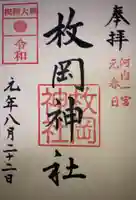 奉拝
河内一宮
元春日
枚岡神社
枚岡
神社
令和
元年八月二十二日